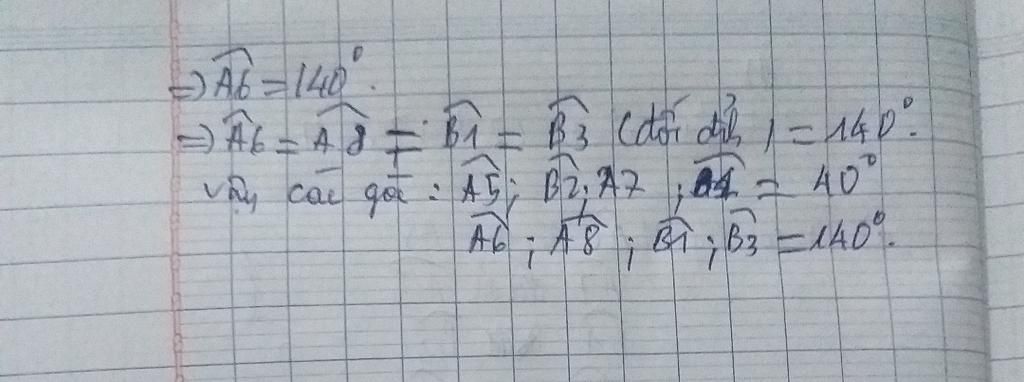 ⇒ Â6 = 140°.
⇒ Â6 = Â8 = B̂1 = B̂3 (đối đỉnh) = 140°.
Vậy các góc : Â5; B̂2; A7 ; = 40°
Â6 ; Â8 ; B̂1 ; B̂3 = 140°.